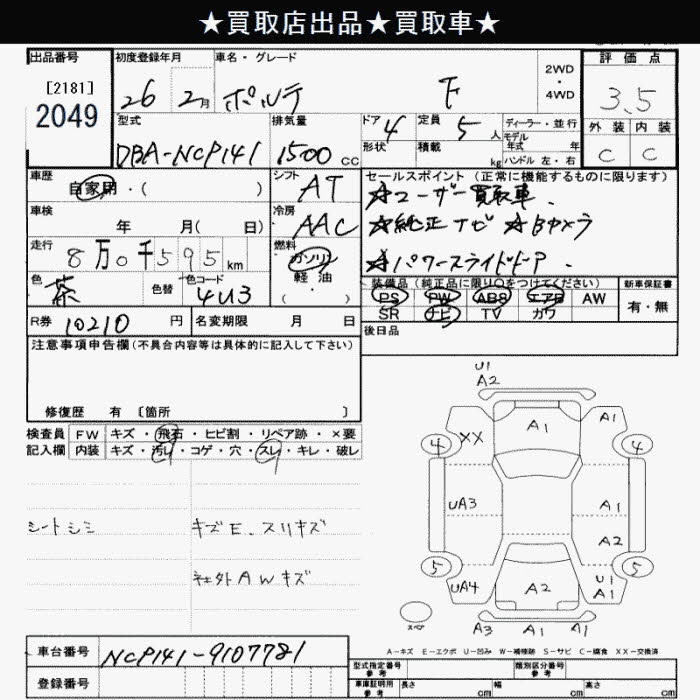 ★買取店出品★買取車★
出品番号
[2181]
2049
初度登録年月
26 2月
車名・グレード
ポルテ F
2WD
・
4WD
評価点
3.5
外装 内装
C C
型式
DBA-NCP141
排気量
1500 CC
ドア 4
形状
定員 5 人
積載 kg
ディーラー・並行
モデル
年式 年
ハンドル 左・右
車歴
自家用・( )
シフト
AT
セールスポイント (正常に機能するものに限ります)
☆ユーザー買取車.
☆純正ナビ ☆Bカメラ
☆パワースライドドア.
車検
年 月( 日)
冷房
AAC
走行
8万0千595km
燃料
ガソリン
軽油
・
( )
色
茶
色替
色コード
4U3
装備品 (純正品に限り○をつけてください)
PS PW ABS エアB AW
SR ナビ TV カワ
新車保証書
有・無
R券 10210 円
名変期限 月 日
後日品
注意事項申告欄(不具合内容等は具体的に記入して下さい)
修復歴 有 [箇所 ]
検査員
記入欄
FW キズ・飛石・ヒビ割・リペア跡・×要
内装 キズ・汚レ・コゲ・穴・スレ・キレ・破レ
シートシミ
キズE.スリキズ
社外AWキズ
U1
A2
A1
A1
4
XX
4
UA3
A1
A2
5
5
UA4
A2
U1
A1
スペア
A3 A1 A1
A−キズ E−エクボ U−凹み W−補修跡 S−サビ C−腐食 XX−交換済
車台番号
NCP141-9107781
登録番号
型式指定番号
参考
類別区分番号
参考
車庫証明用
参考
長さ cm 幅 cm 高さ cm